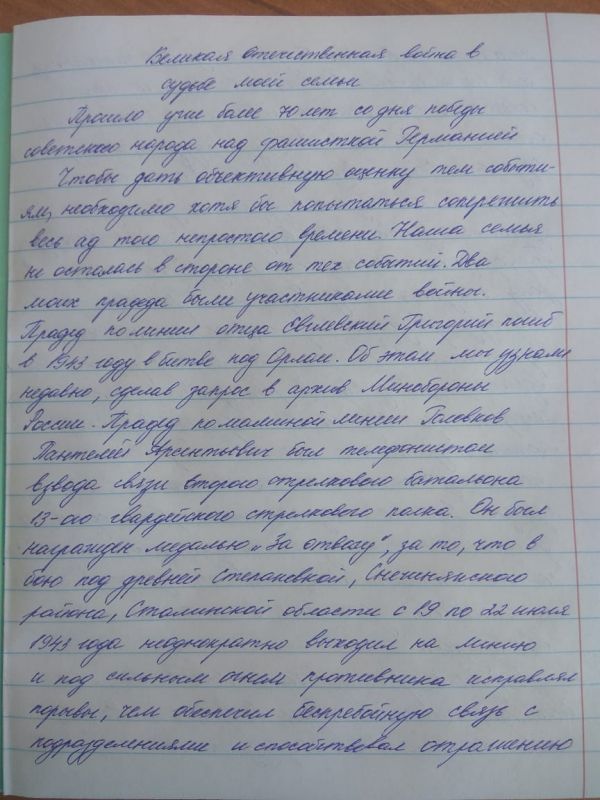 Великая отечественная война в
судьбе моей семьи
Прошло уже более 70 лет со дня победы
советского народа над фашисткой Германией
Чтобы дать объективную оценку тем событи-
ям, необходимо хотя бы попытаться
весь ад того непростого времени. Наша семья
не осталась в стороне от тех событий. Два
моих прадеда были участниками войны.
Прадед по линии отца Григорий погиб
в 1943 году в битве под Орлом. Об этом мы узнали
недавно, сделав запрос в архив Минобороны
России. Прадед по маминой линии Головков
Пантелей Арсентьевич был телефонистом
взвода связи второго стрелкового батальона
13-ого гвардейского стрелкового полка. Он был
награжден медалью „За отвагу", за то, что в
бою под древней Степановкой,
района, Сталинской области с 19 по 22 июля
1943 года неоднократно выходил на линию
и под сильным огнем противника исправлял
порывы, чем обеспечил бесперебойную связь с
подразделениями и способствовал отражению